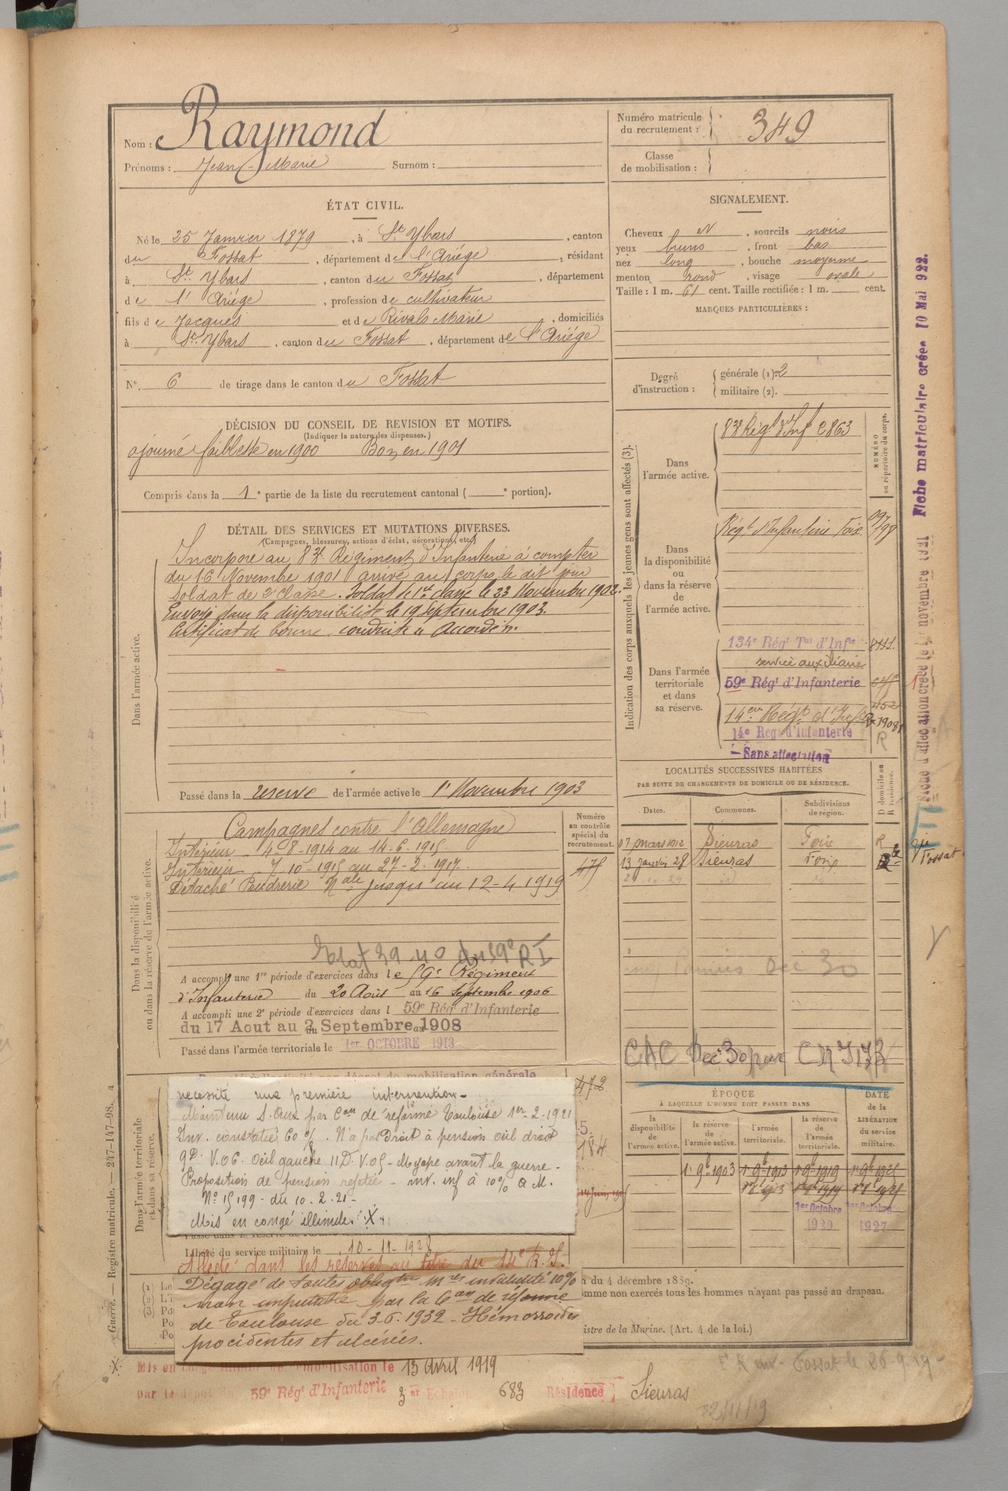 Nom : Raymond
Prénoms : Jean-Marie Surnom :
Numéro matricule du recrutement : 349
Classe de mobilisation :
ÉTAT CIVIL.
Né le 25 Janvier 1879, à St Ybars, canton
du Fossat, département de l'Ariége, résidant
à St Ybars, canton du Fossat, département
de l'Ariége, profession de cultivateur
fils de Jacques et de Rivals Marie, domiciliés
à St Ybars, canton du Fossat, département de l'Ariége
N° 6 de tirage dans le canton du Fossat
SIGNALEMENT.
Cheveux N, sourcils noirs
yeux bruns, front bas
nez long, bouche moyenne
menton rond, visage ovale
Taille : 1 m. 61 cent. Taille rectifiée : 1 m. cent.
MARQUES PARTICULIÈRES :
Degré d'instruction : générale (1) 2
militaire (2).
DÉCISION DU CONSEIL DE REVISION ET MOTIFS.
(Indiquer la nature des dispenses.)
ajourné faiblesse en 1900 Bon en 1901
Compris dans la 1e partie de la liste du recrutement cantonal ( e portion).
DÉTAIL DES SERVICES ET MUTATIONS DIVERSES.
(Campagnes, blessures, actions d'éclat, décorations, etc.)
Dans l'armée active.
Incorporé au 83e Régiment d'Infanterie à compter
du 16 Novembre 1901 arrivé au corps le dit jour
Soldat de 2e classe. Soldat de 1re classe le 23 Novembre 1902.
Envoyé dans la disponibilité le 19 septembre 1903.
Certificat de bonne conduite "Accordé".
Passé dans la réserve de l'armée active le 1er Novembre 1903
Indication des corps auxquels les jeunes gens sont affectés (3).
NUMÉRO au répertoire du corps.
Dans l'armée active.
83e Régt d'Inf 2863
Dans la disponibilité ou dans la réserve de l'armée active.
Régt d'Infanterie Foix
Dans l'armée territoriale et dans sa réserve.
134e Régt Tal d'Infie
service auxiliaire
59e Régt d'Infanterie
14e Régt d'Inf
14e Régt d'Infanterie
Sans affectation
Fiche matriculaire créée 10 Mai 1922.
LOCALITÉS SUCCESSIVES HABITÉES
PAR SUITE DE CHANGEMENTS DE DOMICILE OU DE RÉSIDENCE.
Dates. Communes. Subdivisions de région. D domicile ou R résidence.
17 mars 1912 Sieuras Foix R
13 janvier 28 Sieuras Foix
Dans la disponibilité ou dans la réserve de l'armée active.
Numéro au contrôle spécial du recrutement.
Campagnes contre l'Allemagne
Intérieur 4-8-1914 au 14-6-1915
Intérieur 7-10-1915 au 27-2-1917
Détaché Poudrerie Nale jusqu'au 12-4 1919
A accompli une 1re période d'exercices dans le 59e Régiment
d'Infanterie du 20 Août au 16 septembre 1906
A accompli une 2e période d'exercices dans l 59e Régt d'Infanterie
du 17 Aout au 2 Septembre 1908
Passé dans l'armée territoriale le 1er OCTOBRE 1913
CAC Dec 30
Dans l'armée territoriale et dans sa réserve.
nécessité une première intervention -
Maintenu S. Aux par Con de réforme Toulouse 1er-2-1921
Inv. constatée 60 %. N'a pas droit à pension œil droit
Oeil gauche - Myope avant la guerre.
Proposition de pension rejetée - inv. inf à 10% A.M.
N° 15199 du 10.2.21-
Mis en congé illimité. X
Libéré du service militaire le 10-11-1928
Affecté dans les réserves au titre du 14e R.I.
Dégagé de toutes obligtns mres invalidité 10%
non imputable par la Con de réforme
de Toulouse du 3.6.1932 - Hémorroides
procidentes et ulcérées.
ÉPOQUE
À LAQUELLE L'HOMME DOIT PASSER DANS
DATE de la LIBÉRATION du service militaire.
la disponibilité de l'armée active. la réserve de l'armée active. l'armée territoriale. la réserve de l'armée territoriale.
1er 9bre 1903 1er 9bre 1913 1er 9bre 1919 1er 9bre 1925
1er Octobre
1927
du 4 décembre 1889.
omme non exercés tous les hommes n'ayant pas passé au drapeau.
istre de la Marine. (Art. 4 de la loi.)
13 Avril 1919
59e Régt d'Infanterie 683 Résidence Sieuras
Guerre. — Registre matricule. 247-147-98.